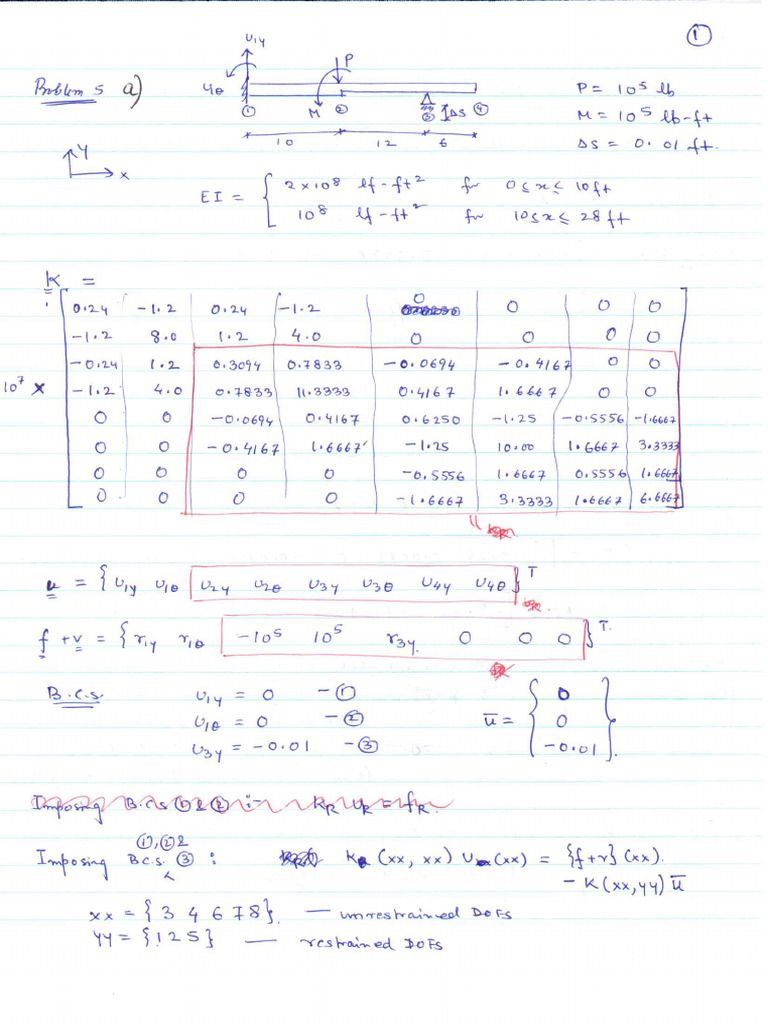 ①
U1y
P
Problem 5 a)
U1θ
① M ② ③ ΔS ④
10 12 6
P = 10⁵ lb
M = 10⁵ lb-ft
ΔS = 0.01 ft.
Y
x
EI = { 2 × 10⁸ lf-ft² for 0 ≤ x ≤ 10ft
10⁸ lf-ft² for 10 ≤ x ≤ 28 ft
K =
0.24 -1.2 0.24 -1.2 0 0 0 0
-1.2 8.0 1.2 4.0 0 0 0 0
-0.24 1.2 0.3094 0.7833 -0.0694 -0.4167 0 0
10⁷ × -1.2 4.0 0.7833 11.3333 0.4167 1.6667 0 0
0 0 -0.0694 0.4167 0.6250 -1.25 -0.5556 -1.6667
0 0 -0.4167 1.6667 -1.25 10.00 1.6667 3.3333
0 0 0 0 -0.5556 1.6667 0.5556 1.6667
0 0 0 0 -1.6667 3.3333 1.6667 6.6667
u = {U1y U1θ U2y U2θ U3y U3θ U4y U4θ}T
f + v = {r1y r1θ -10⁵ 10⁵ r3y. 0 0 0}T.
B.C.s.
U1y = 0 - ①
U1θ = 0 - ②
U3y = -0.01 - ③
ū = { 0
0
-0.01 }.
Imposing B.C.s ① & ② :- KR UR = fR.
①, ② &
Imposing B.C.S. ③ : K (xx, xx) U (xx) = {f+r} (xx).
- K (xx, yy) ū
xx = {3 4 6 7 8}. — unrestrained DOFs
yy = {1 2 5} — restrained DOFs